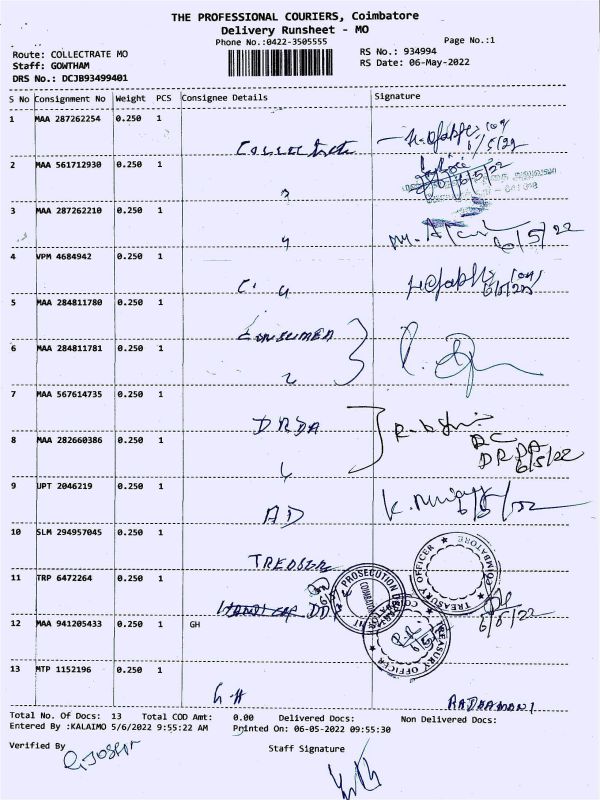 THE PROFESSIONAL COURIERS, Coimbatore
Delivery Runsheet - MO
Phone No.:0422-3505555
Page No.:1
Route: COLLECTRATE MO
RS No.: 934994
Staff: GOWTHAM
RS Date: 06-May-2022
DRS No.: DCJB93499401
S No Consignment No Weight PCS Consignee Details Signature
1 MAA 287262254 0.250 1
Collectrate
6/5/22
2 MAA 561712930 0.250 1
6/5/22
3 MAA 287262210 0.250 1
6/5/22
4 VPM 4684942 0.250 1
5 MAA 284811780 0.250 1
CONSUMER
6 MAA 284811781 0.250 1
7 MAA 567614735 0.250 1
DRDA
8 MAA 282660386 0.250 1
DRDA
6/5/22
9 UPT 2046219 0.250 1
AD
10 SLM 294957045 0.250 1
TREASURY OFFICER
COIMBATORE
11 TRP 6472264 0.250 1
PROSECUTION DEPARTMENT
COIMBATORE
6/5/22
12 MAA 941205433 0.250 1 GH
TREASURY OFFICER
13 MTP 1152196 0.250 1
GH
RADRAMANI
Total No. Of Docs: 13 Total COD Amt: 0.00 Delivered Docs: Non Delivered Docs:
Entered By :KALAIMO 5/6/2022 9:55:22 AM Printed On: 06-05-2022 09:55:30
Verified By
Staff Signature